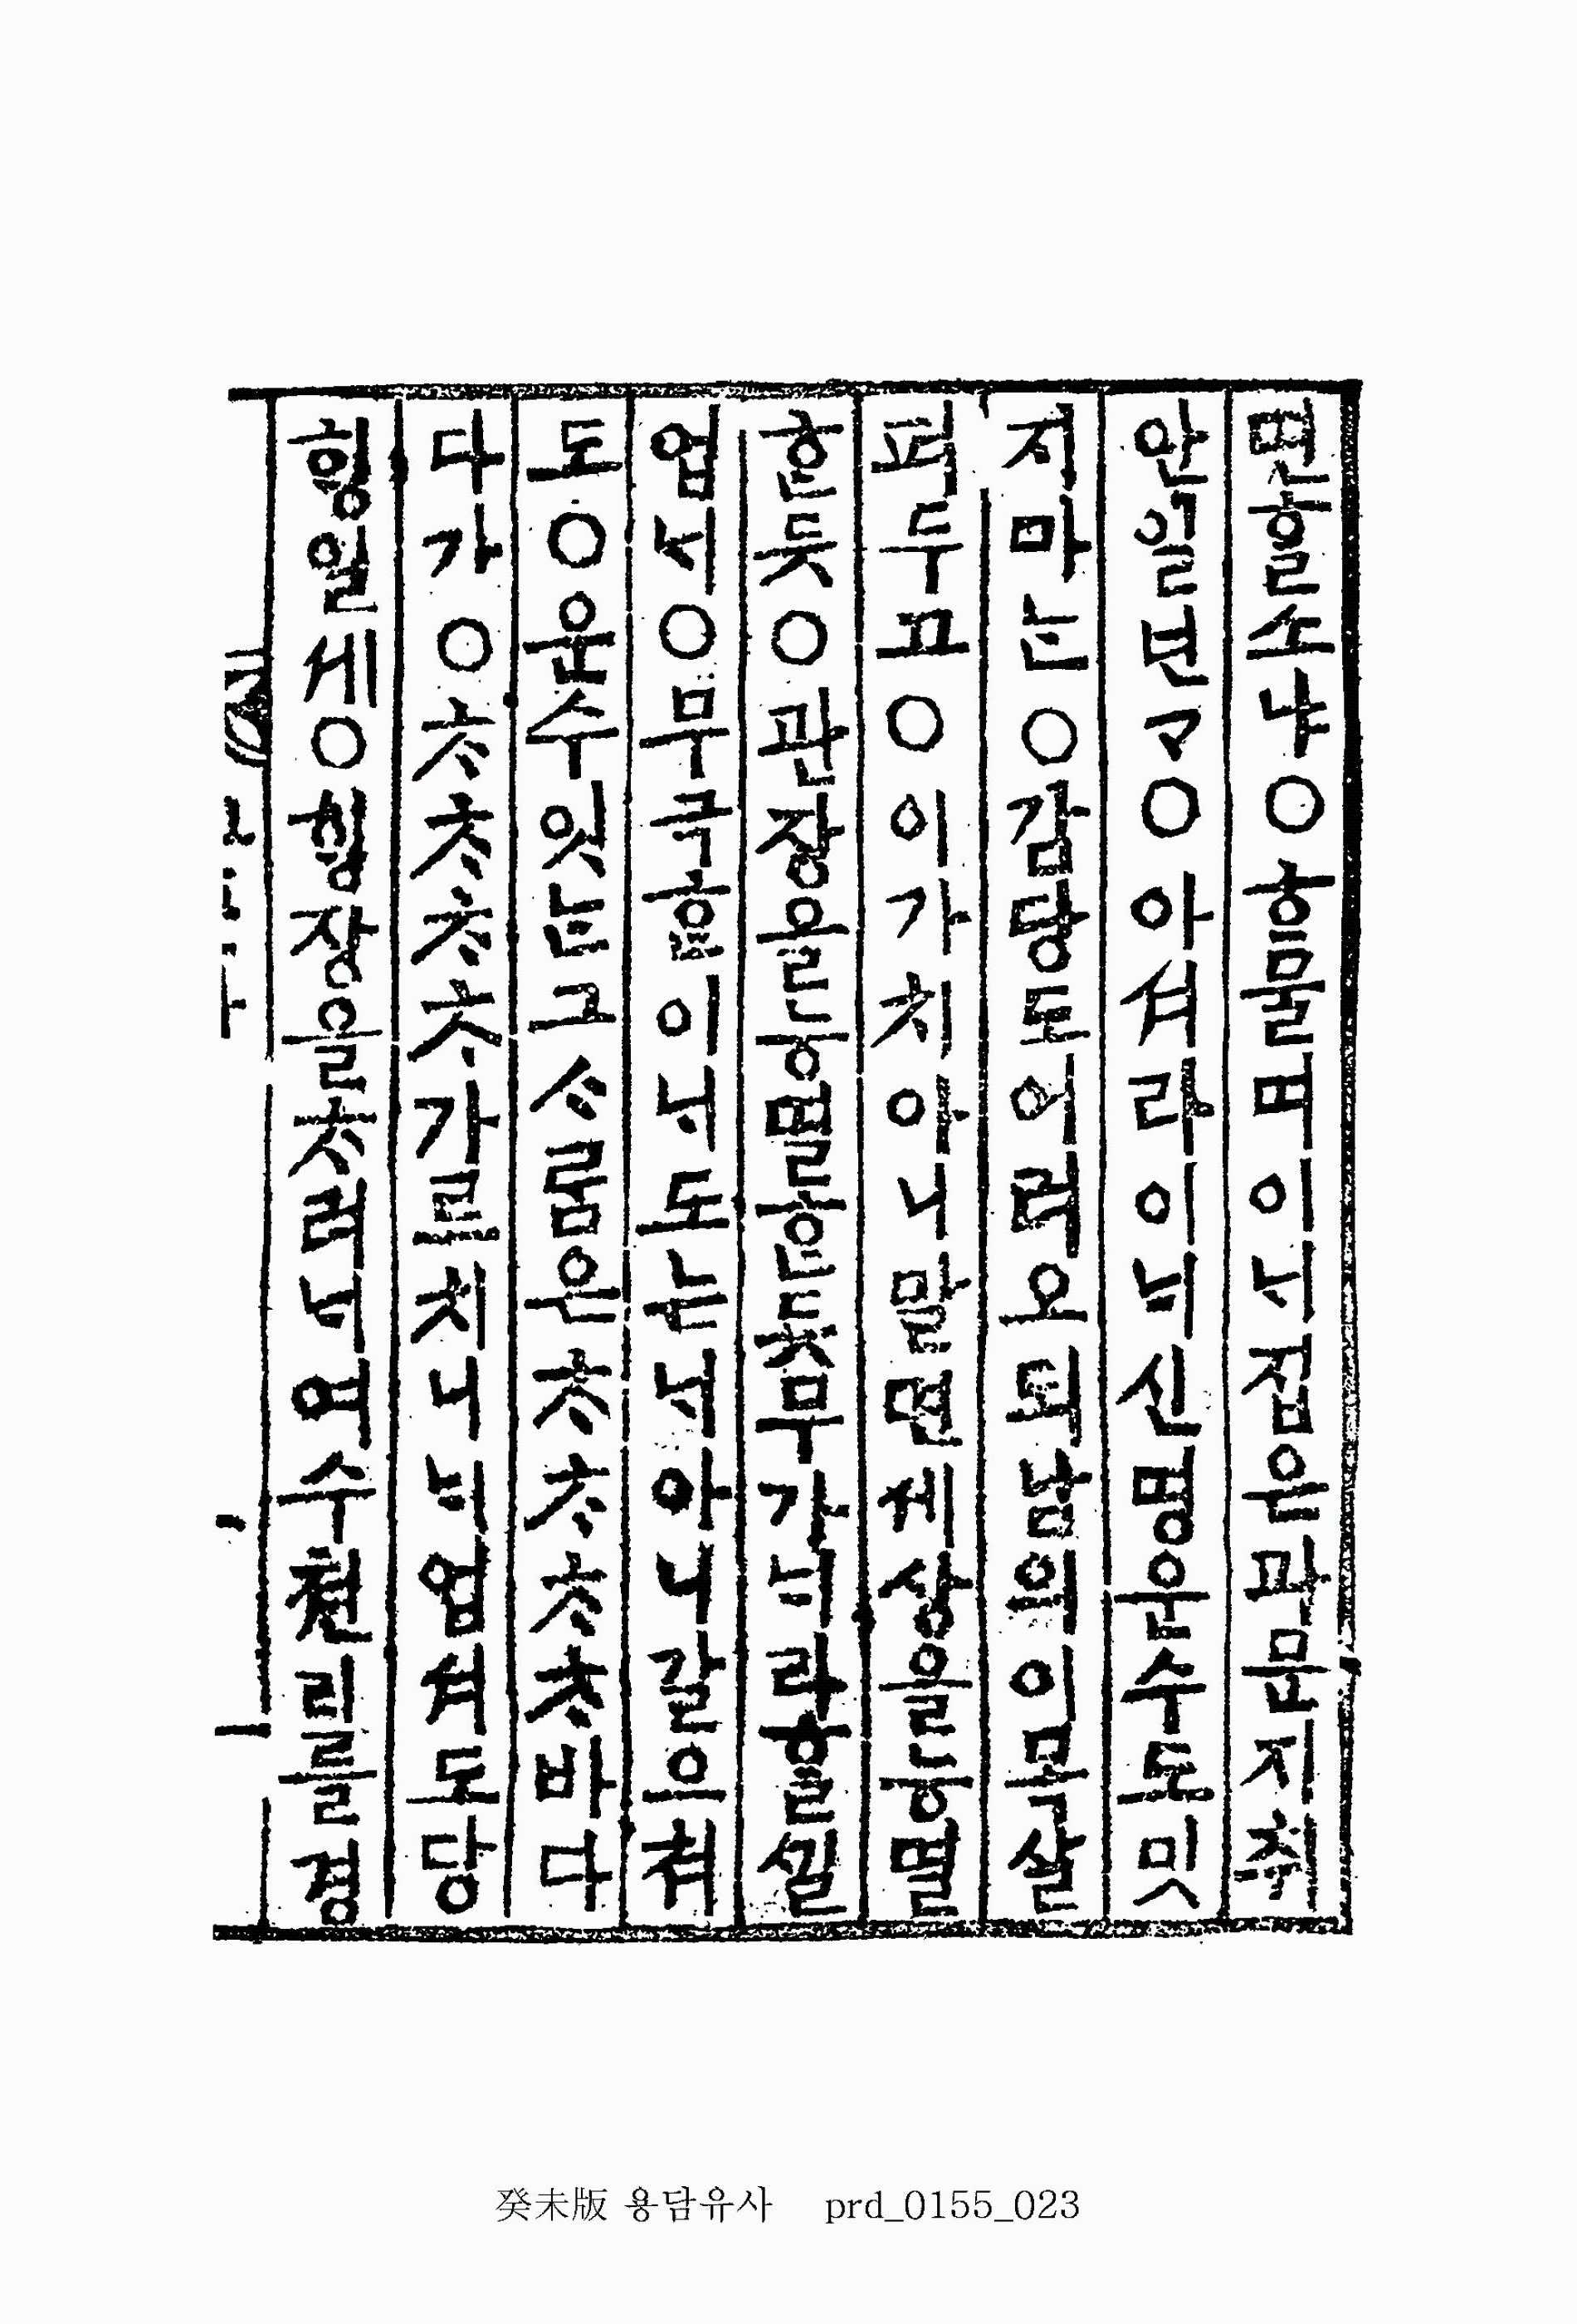 면ᄒᆞᆯ소냐○ᄒᆞ물며이ᄂᆡ집은과문지취
안일넌ᄀᆞ○아셔라이ᄂᆡ신명운수도밋
지마는○감당도어려오되남의이목살
펴두고○이가치아니말면세상을능멸
ᄒᆞᆫ듯○관장을능멸ᄒᆞᆫ듯무가ᄂᆡ라ᄒᆞᆯᄭᅵᆯ
업서○무극ᄒᆞᆫ이ᄂᆡ도는ᄂᆡ아니갈으쳐
도○운수잇는그ᄉᆞᄅᆞᆷ은ᄎᆞᄎᆞᄎᆞᄎᆞ바다
다가○ᄎᆞᄎᆞᄎᆞᄎᆞ가르치니ᄂᆡ업셔도당
ᄒᆡᆼ일세○ᄒᆡᆼ장을ᄎᆞ려ᄂᆡ여수쳔리를경
癸未版 용담유사 prd_0155_023